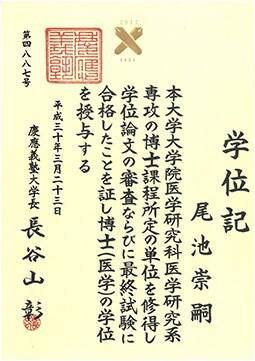 学位記
尾池崇嗣
本大学大学院医学研究科医学研究系
専攻の博士課程所定の単位を修得し
学位論文の審査ならびに最終試験に
合格したことを証し博士(医学)の学位
を授与する
平成三十年三月二十三日
慶應義塾大学長 長谷山 彰
第四八八七号
慶應義塾